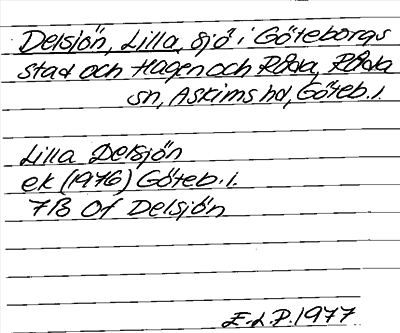 Delsjön, Lilla, sjö i Göteborgs
stad och Hagen och Råda, Råda
sn, Askims hd, Göteb. l.
Lilla Delsjön
ek (1976) Göteb. l.
7B 0f Delsjön
E.L.P. 1977